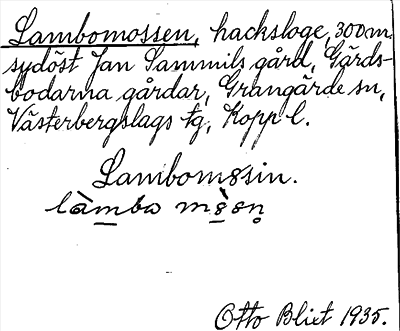 Lambomossen, hacksloge, 300 m.
sydöst Jan Sammils gård, Gärds-
bodarna gårdar, Grangärde sn,
Västerbergslags tg, Kopp l.
Lambomssin.
Otto Bliet 1935.